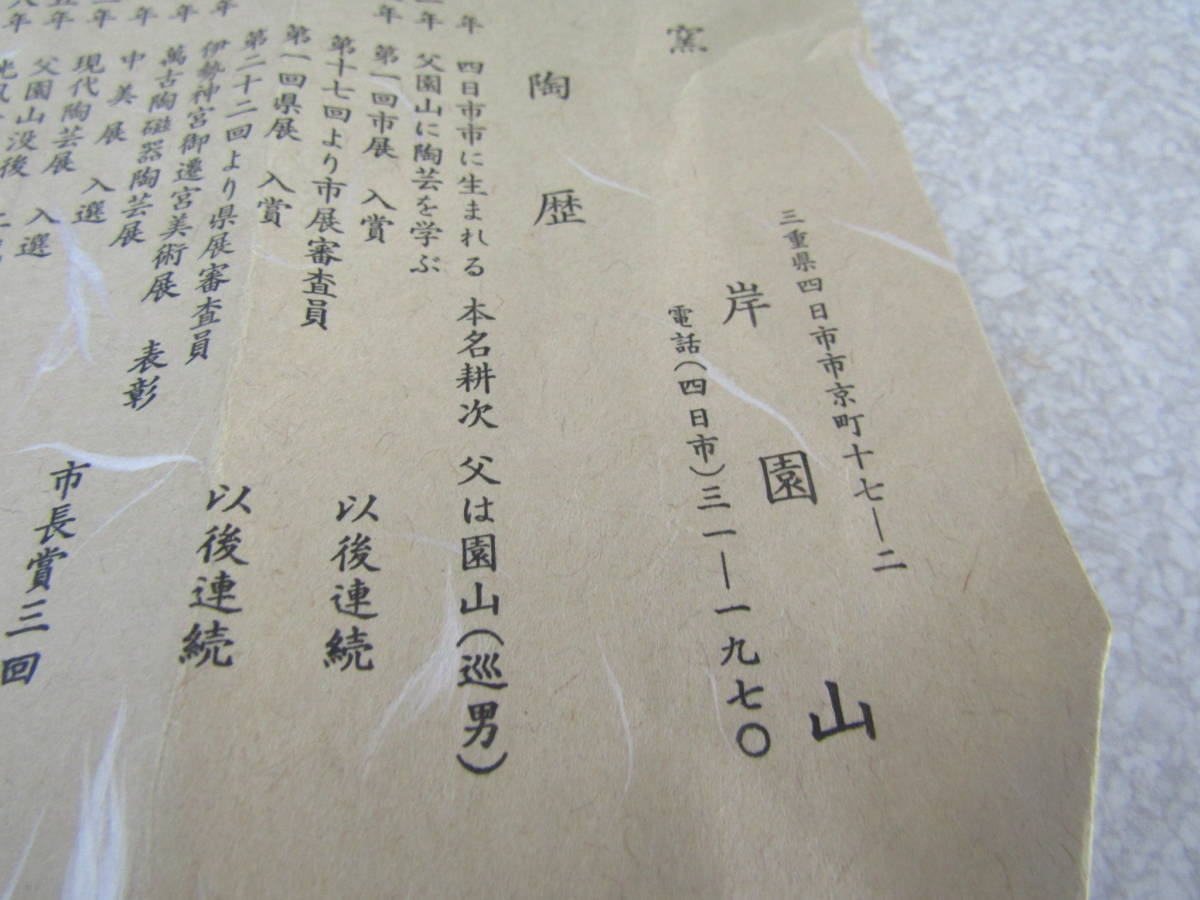 三重県四日市市京町十七―二
窯 岸園山
電話(四日市)三一―一九七〇
陶歴
年 四日市市に生まれる 本名耕次 父は園山(巡男)
年 父園山に陶芸を学ぶ
年 第一回市展 入賞
年 第十七回より市展審査員 以後連続
第一回県展 入賞
年 第二十二回より県展審査員 以後連続
年 伊勢神宮御遷宮美術展
年 萬古陶磁器陶芸展 表彰 市長賞三回
年 中美展 入選
年 現代陶芸展 入選
年 父園山没後